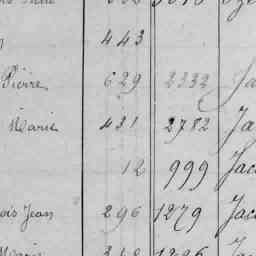 443
Pierre 629 2332 Ja
Marie 431 2782 Ja
12 999 Jac
ois Jean 296 1279 Jac